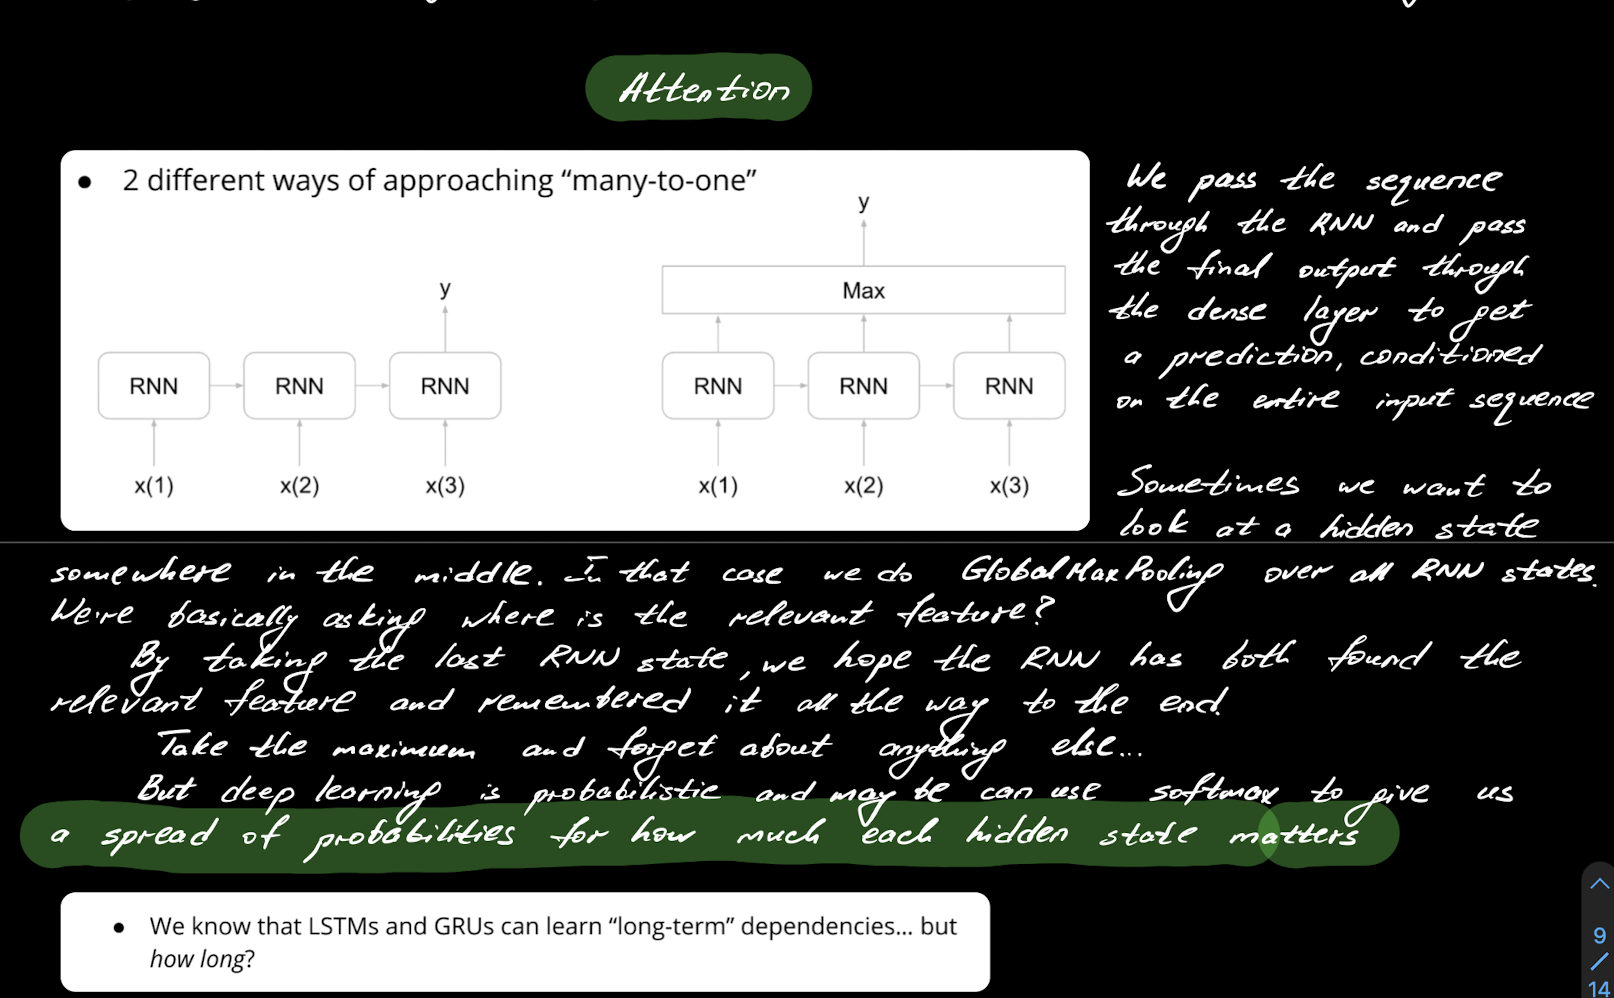 Attention
● 2 different ways of approaching “many-to-one”
y
RNN RNN RNN
x(1) x(2) x(3)
y
Max
RNN RNN RNN
x(1) x(2) x(3)
We pass the sequence
through the RNN and pass
the final output through
the dense layer to get
a prediction, conditioned
on the entire input sequence
Sometimes we want to
look at a hidden state
somewhere in the middle. In that case we do GlobalMaxPooling over all RNN states.
We're basically asking where is the relevant feature?
By taking the last RNN state, we hope the RNN has both found the
relevant feature and remembered it all the way to the end.
Take the maximum and forget about anything else...
But deep learning is probabilistic and may be can use softmax to give us
a spread of probabilities for how much each hidden state matters
● We know that LSTMs and GRUs can learn “long-term” dependencies... but
how long?
9
/
14